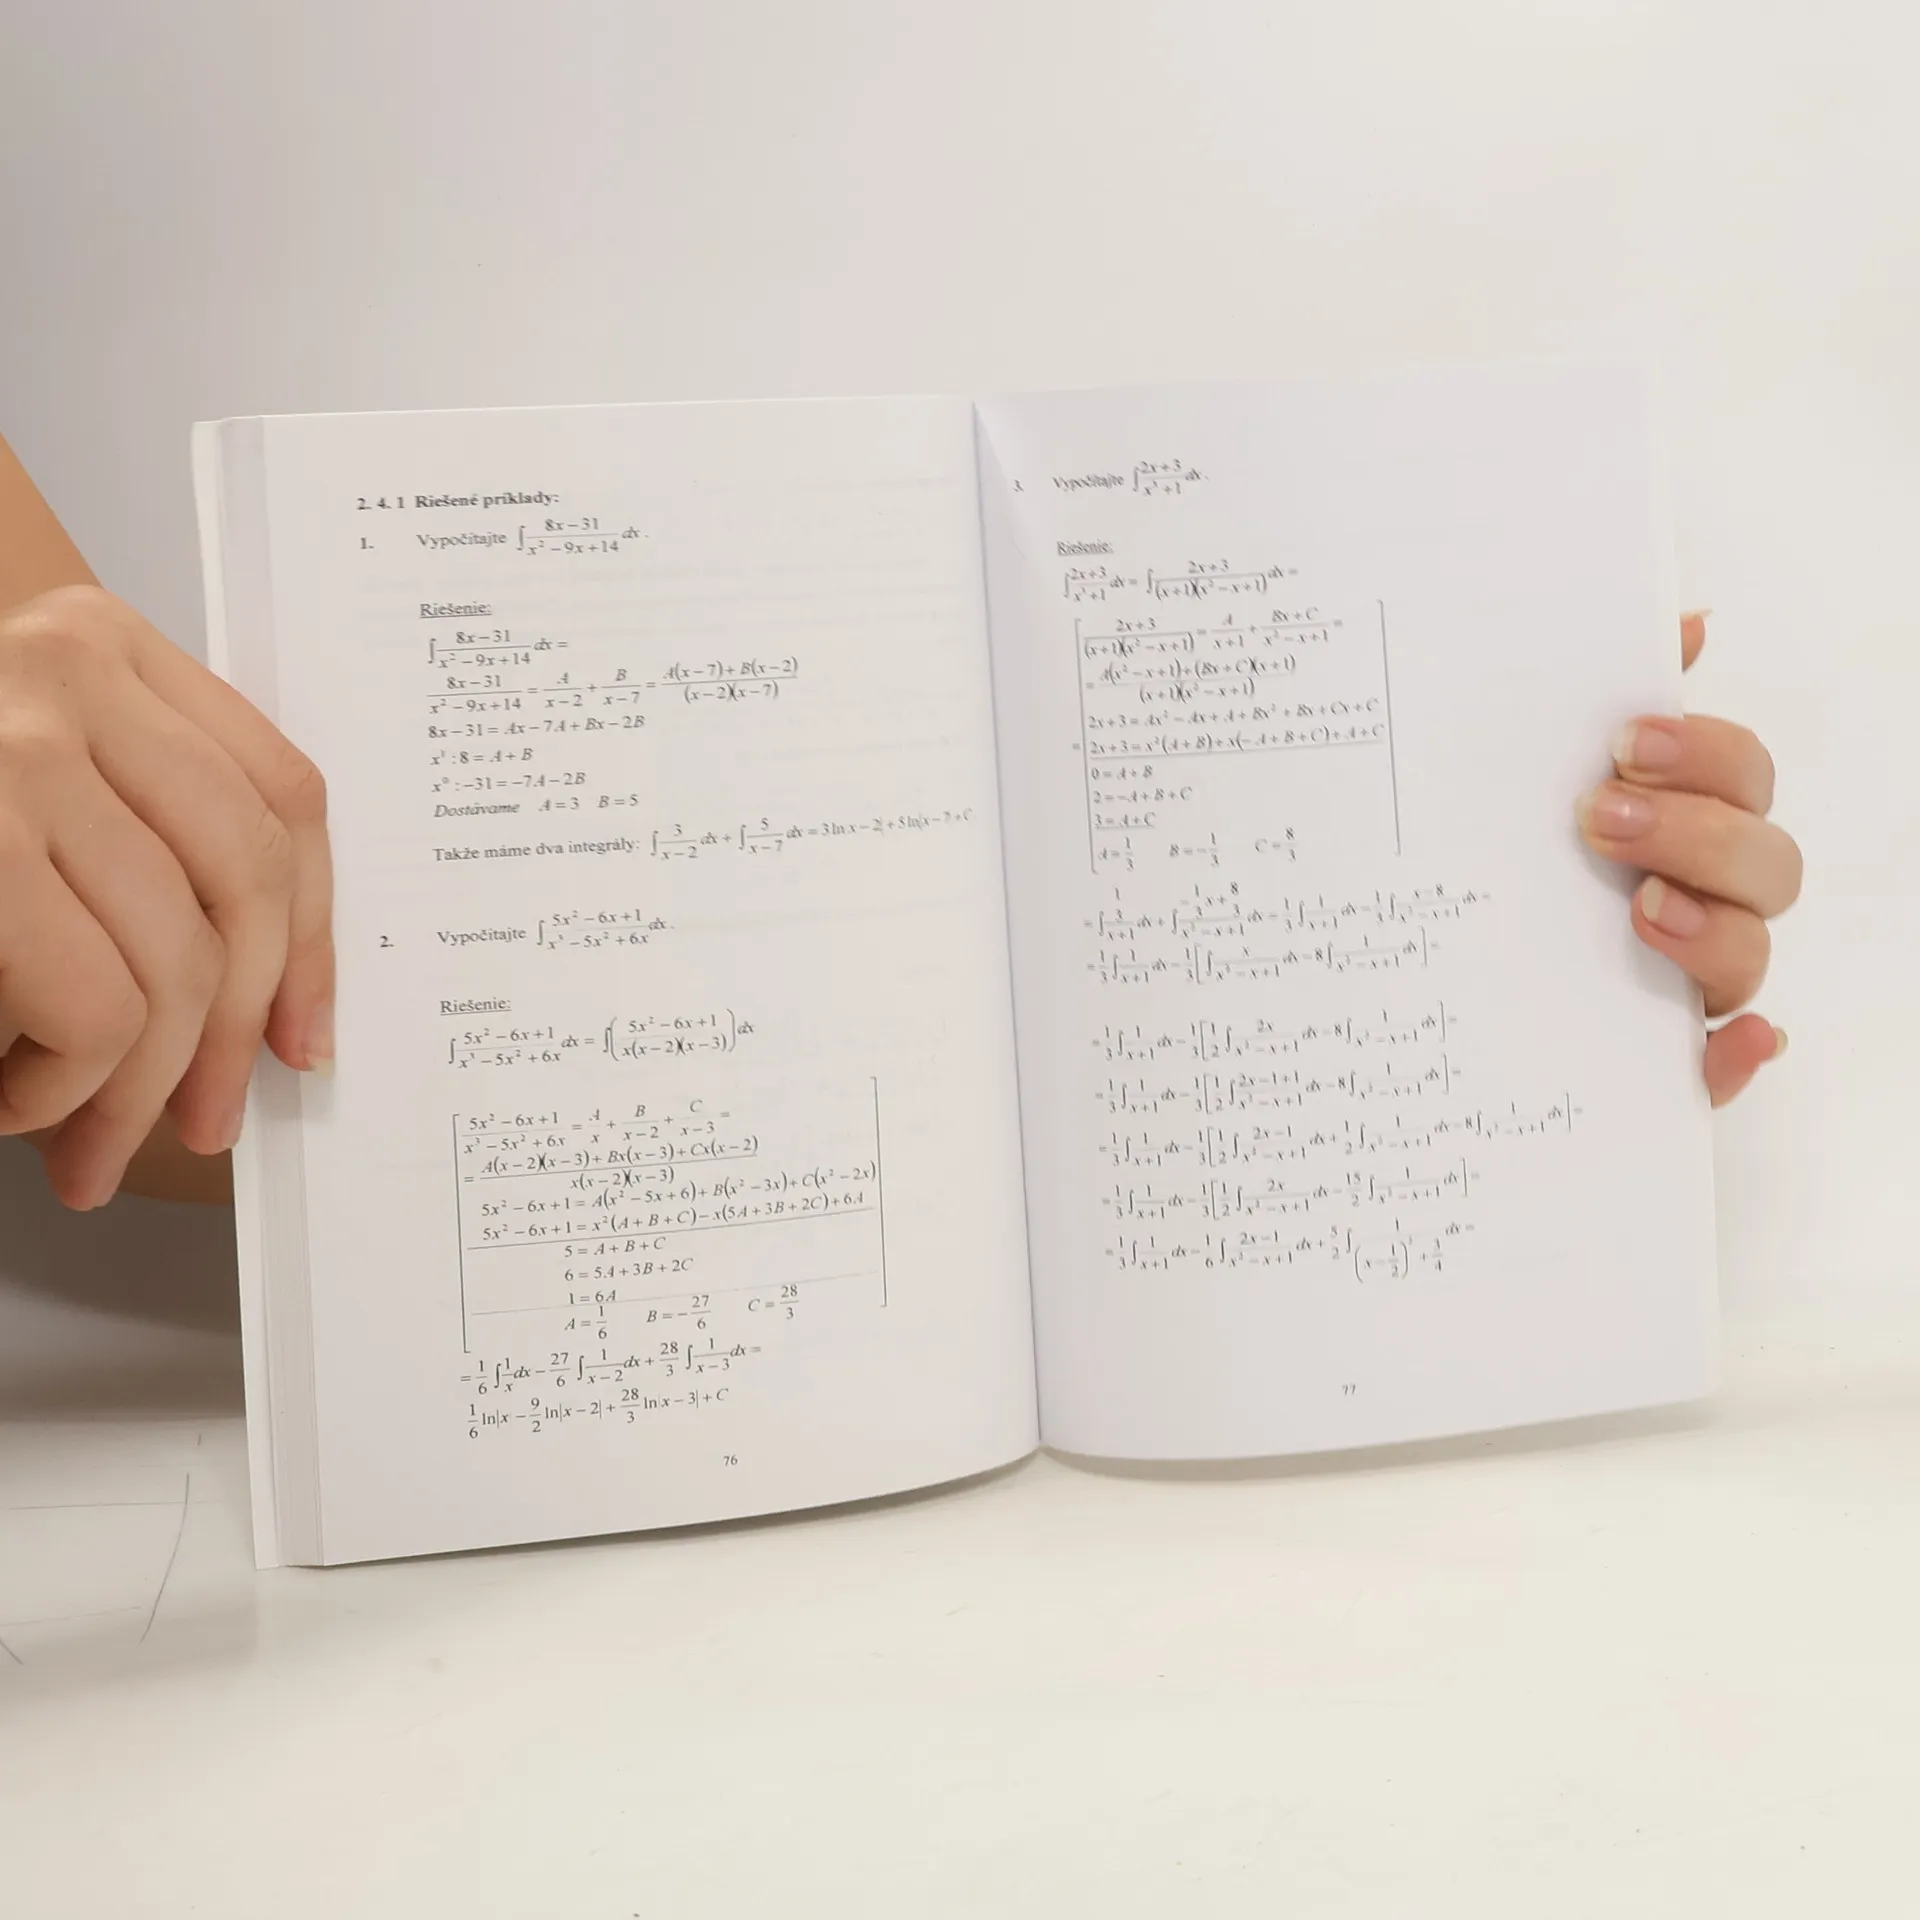 2. 4. 1 Riešené príklady:
1. Vypočítajte ∫ (8x−31)/(x² −9x+14) dx.
Riešenie:
∫ (8x−31)/(x² −9x+14) dx =
(8x−31)/(x² −9x+14) = A/(x−2) + B/(x−7) = (A(x−7)+B(x−2))/((x−2)(x−7))
8x−31 = Ax−7A+Bx−2B
x¹ :8 = A+B
x⁰ :−31 = −7A−2B
Dostávame A=3 B=5
Takže máme dva integrály: ∫ 3/(x−2) dx + ∫ 5/(x−7) dx = 3 ln x−2| + 5 ln|x−7+C
2. Vypočítajte ∫ (5x² −6x+1)/(x³ −5x² +6x) dx.
Riešenie:
∫ (5x² −6x+1)/(x³ −5x² +6x) dx = ∫( (5x² −6x+1)/(x(x−2)(x−3)) ) dx
(5x² −6x+1)/(x³ −5x² +6x) = A/x + B/(x−2) + C/(x−3) =
= (A(x−2)(x−3)+Bx(x−3)+Cx(x−2))/(x(x−2)(x−3))
5x² −6x+1 = A(x² −5x+6)+B(x² −3x)+C(x² −2x)
5x² −6x+1 = x²(A+B+C)−x(5A+3B+2C)+6A
5 = A+B+C
6 = 5A+3B+2C
1 = 6A
A = 1/6 B = −27/6 C = 28/3
= 1/6 ∫ 1/x dx − 27/6 ∫ 1/(x−2) dx + 28/3 ∫ 1/(x−3) dx =
1/6 ln|x − 9/2 ln|x−2| + 28/3 ln|x−3| + C
76
3. Vypočítajte ∫ (2x+3)/(x³ +1) dx.
Riešenie:
∫ (2x+3)/(x³ +1) dx = ∫ (2x+3)/((x+1)(x² −x+1)) dx =
(2x+3)/((x+1)(x² −x+1)) = A/(x+1) + (Bx+C)/(x² −x+1) =
= (A(x² −x+1)+(Bx+C)(x+1))/((x+1)(x² −x+1))
2x+3 = Ax² −Ax+A+Bx² +Bx+Cx+C
= 2x+3 = x²(A+B)+x(−A+B+C)+A+C
0 = A+B
2 = −A+B+C
3 = A+C
A = 1/3 B = −1/3 C = 8/3
= ∫ (1/3)/(x+1) dx + ∫ (−1/3 x + 8/3)/(x² −x+1) dx = 1/3 ∫ 1/(x+1) dx − 1/3 ∫ (x−8)/(x² −x+1) dx =
= 1/3 ∫ 1/(x+1) dx − 1/3 [ ∫ x/(x² −x+1) dx − 8 ∫ 1/(x² −x+1) dx ] =
= 1/3 ∫ 1/(x+1) dx − 1/3 [ 1/2 ∫ 2x/(x² −x+1) dx − 8 ∫ 1/(x² −x+1) dx ] =
= 1/3 ∫ 1/(x+1) dx − 1/3 [ 1/2 ∫ (2x−1+1)/(x² −x+1) dx − 8 ∫ 1/(x² −x+1) dx ] =
= 1/3 ∫ 1/(x+1) dx − 1/3 [ 1/2 ∫ (2x−1)/(x² −x+1) dx + 1/2 ∫ 1/(x² −x+1) dx − 8 ∫ 1/(x² −x+1) dx ] =
= 1/3 ∫ 1/(x+1) dx − 1/3 [ 1/2 ∫ 2x/(x² −x+1) dx − 15/2 ∫ 1/(x² −x+1) dx ] =
= 1/3 ∫ 1/(x+1) dx − 1/6 ∫ (2x−1)/(x² −x+1) dx + 5/2 ∫ 1/((x − 1/2)² + 3/4) dx =
77